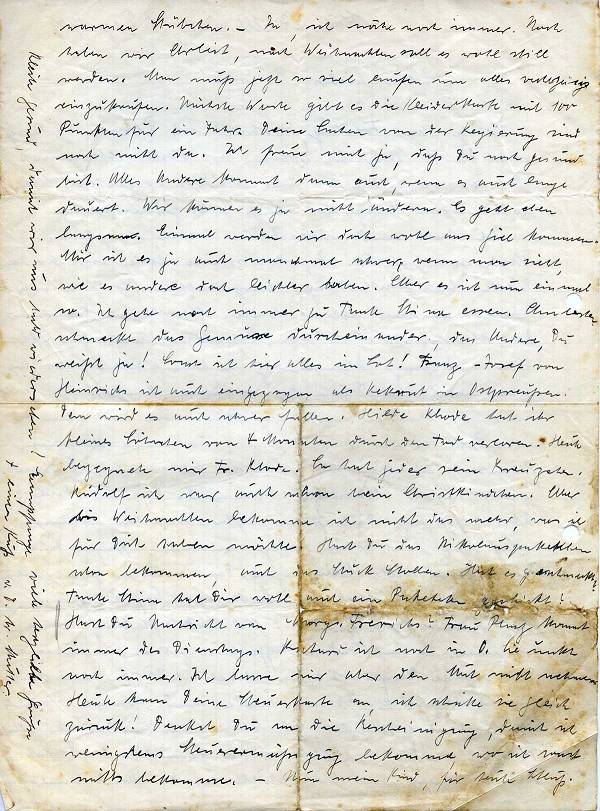 warmen Stübchen. – Ja, ich nähe noch immer. Noch
haben wir Arbeit, nach Weihnachten soll es wohl still
werden. Man muß jetzt so viel laufen um alles
einzukaufen. Nächste Woche gibt es die Kleiderkarte mit 100
Punkten für ein Jahr. Deine Sachen von der Regierung sind
noch nicht da. Ich freue mich ja, daß Du noch gesund
bist. Alles Andere kommt dann auch, wenn es auch lange
dauert. Wir können es ja nicht ändern. Es geht eben
langsam. Einmal werden wir doch wohl ans Ziel kommen.
Mir ist es ja auch manchmal schwer, wenn man sieht,
wie es andere doch leichter haben. Aber es ist nun einmal
so. Ich gehe noch immer zu Tante Stina essen. Am besten
schmeckt das Gemüse durcheinander, das Andere, Du
weißt ja! Sonst ist hier alles im Lot! Franz-Josef von
Heinrichs ist auch eingezogen als Rekrut in Ostpreußen.
Dem wird es auch schwer fallen. Hilde Rhode hat ihr
kleines Söhnchen von 4 Monaten durch den Tod verloren. Heute
begegnete mir Fr. Rhode. So hat jeder sein Kreuzchen.
Rudolf ich war auch schon beim Christkindchen. Aber
bis Weihnachten bekomme ich nicht das mehr, was ich
für Dich haben möchte. Hast Du das Nikolauspaketchen
schon bekommen, auch das Stück Stollen. Hat es geschmeckt?
Tante Stina hat Dir wohl auch ein Paketchen geschickt?
Hast Du Nachricht von Frerichs? Frau kommt
immer des Dienstags. ist noch in O. Sie
noch immer. Ich lasse mir aber den Mut nicht nehmen.
Heute kam Deine Steuerkarte an, ich schicke sie gleich
zurück! Denkst Du an die Bescheinigung, damit ich
wenigstens Steuerermäßigung bekomme, wo ich sonst
nichts bekomme. – Nun mein Kind, für heute Schluß.
Bleibe gesund, damit wir uns bald wiedersehen! Empfange viele herzliche Grüße
+ einen Kuß v. D. Mutter